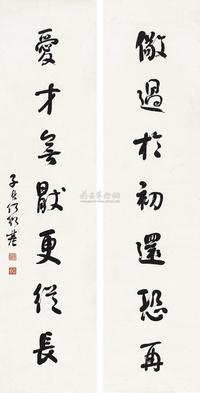 儆過於初還恐再
愛才無猒更從長
子貞何紹基